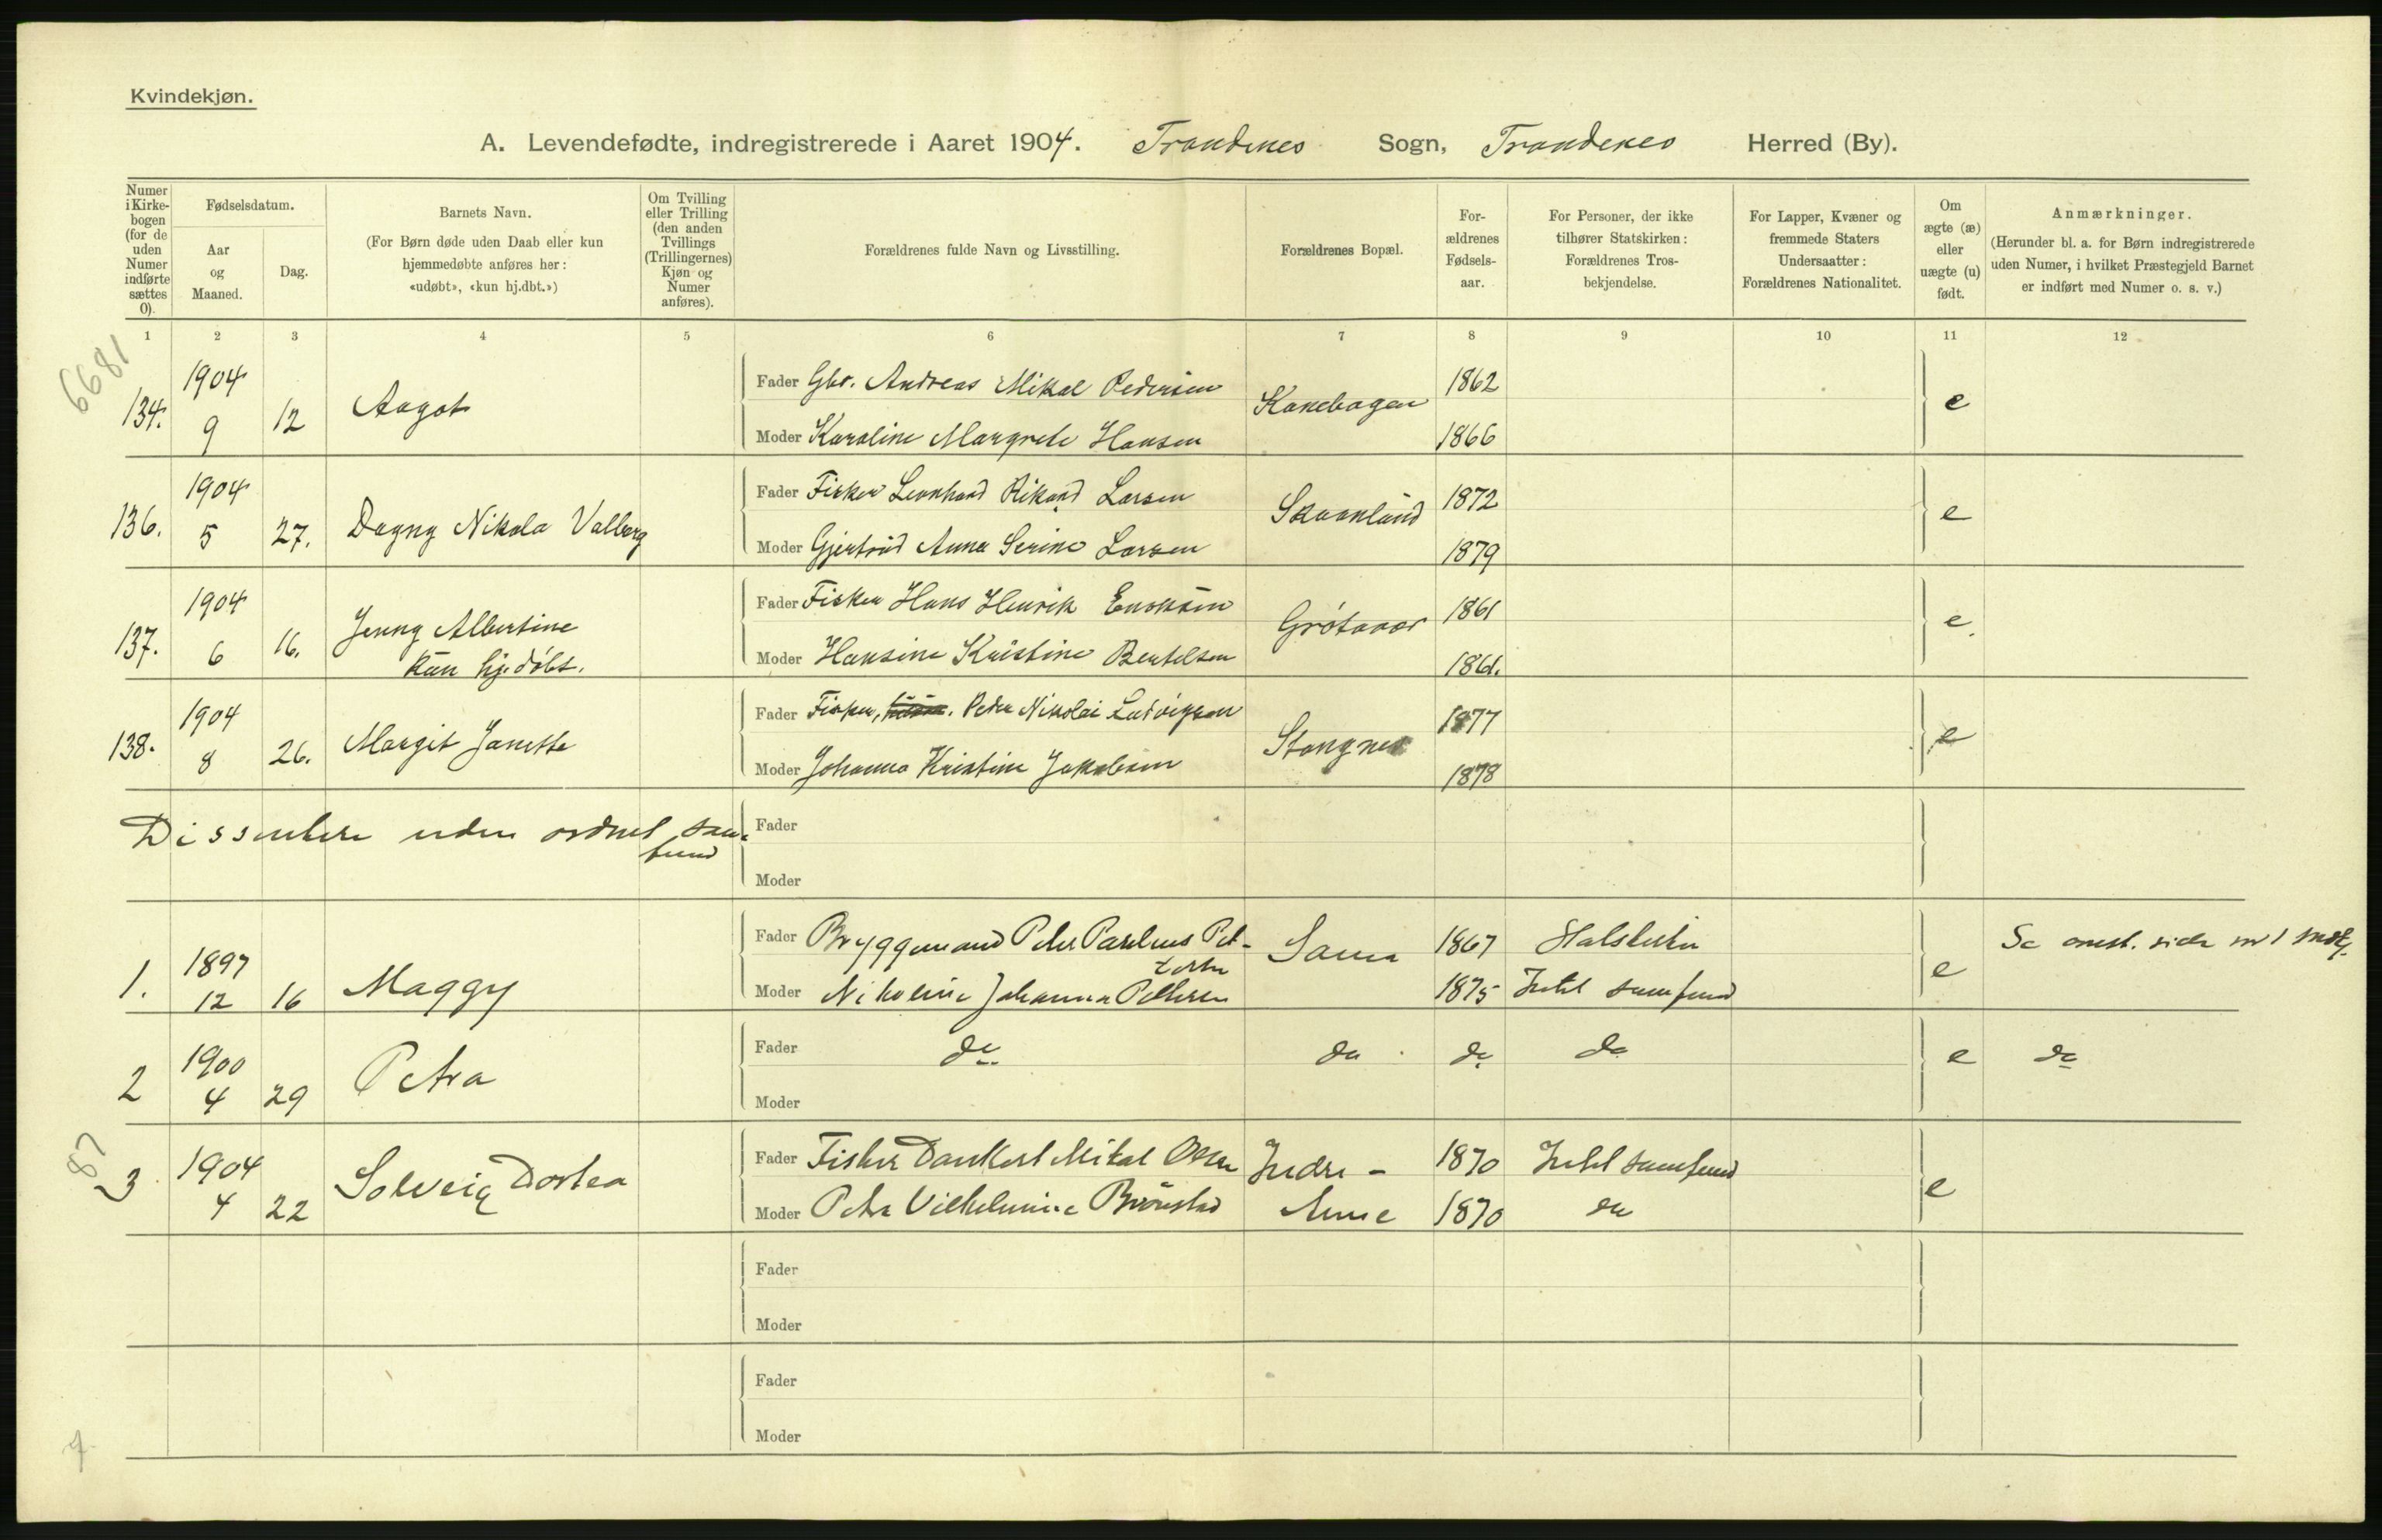 Kvindekjøn.
A. Levendefødte, indregistrerede i Aaret 1904. Trondenes Sogn, Trondenes Herred (By).
Numer i Kirkebogen (for de uden Numer indførte sættes 0).
Fødselsdatum.
Aar og Maaned.
Dag.
Barnets Navn.
(For Børn døde uden Daab eller kun hjemmedøbte anføres her: «udøbt», «kun hj.dbt.»)
Om Tvilling eller Trilling (den anden Tvillings (Trillingernes) Kjøn og Numer anføres).
Forældrenes fulde Navn og Livsstilling.
Forældrenes Bopæl.
Forældrenes Fødselsaar.
For Personer, der ikke tilhører Statskirken: Forældrenes Trosbekjendelse.
For Lapper, Kvæner og fremmede Staters Undersaatter: Forældrenes Nationalitet.
Om ægte (æ) eller uægte (u) født.
Anmærkninger.
(Herunder bl. a. for Børn indregistrerede uden Numer, i hvilket Præstegjeld Barnet er indført med Numer o. s. v.)
1 2 3 4 5 6 7 8 9 10 11 12
6681
134. 1904 9 12 Aagot
Fader Gbr. Andreas Mikal Pedersen Kanebogen 1862 e
Moder Karoline Margrete Hansen 1866
136. 1904 5 27. Dagny Nikola Valborg
Fader Fisker Leonhard Rikard Larsen Skaanland 1872 e
Moder Gjertrud Anna Serine Larsen 1879
137. 1904 6 16. Jenny Albertine
kun hj.døbt.
Fader Fisker Hans Henrik Enoksen Grøtavær 1861 e.
Moder Hansine Kristine Bertelsen 1861.
138. 1904 8 26. Margit Janette
Fader Fisker, Peder Nikolai Ludvigsen Stangnes 1877 e
Moder Johanna Kristine Jakobsen 1878
Dissentere uden ordnet sam-
fund
Fader
Moder
1. 1897 12 16 Maggy
Fader Bryggemand Peter Parelius Pet-
tersen
Sama 1867 Statskirken e
Moder Nikoline Johanna Pettersen 1875 Intet samfund
Se omst. side nr 1
2 1900 4 29 Petra
Fader do do do do e do
Moder
87
3 1904 4 22 Solveig Dortea
Fader Fisker Dankert Mikal Olsen Indre- 1870 Intet samfund e
Moder Petra Vilhelmine Brønstad 1870 do
Fader
Moder
Fader
Moder